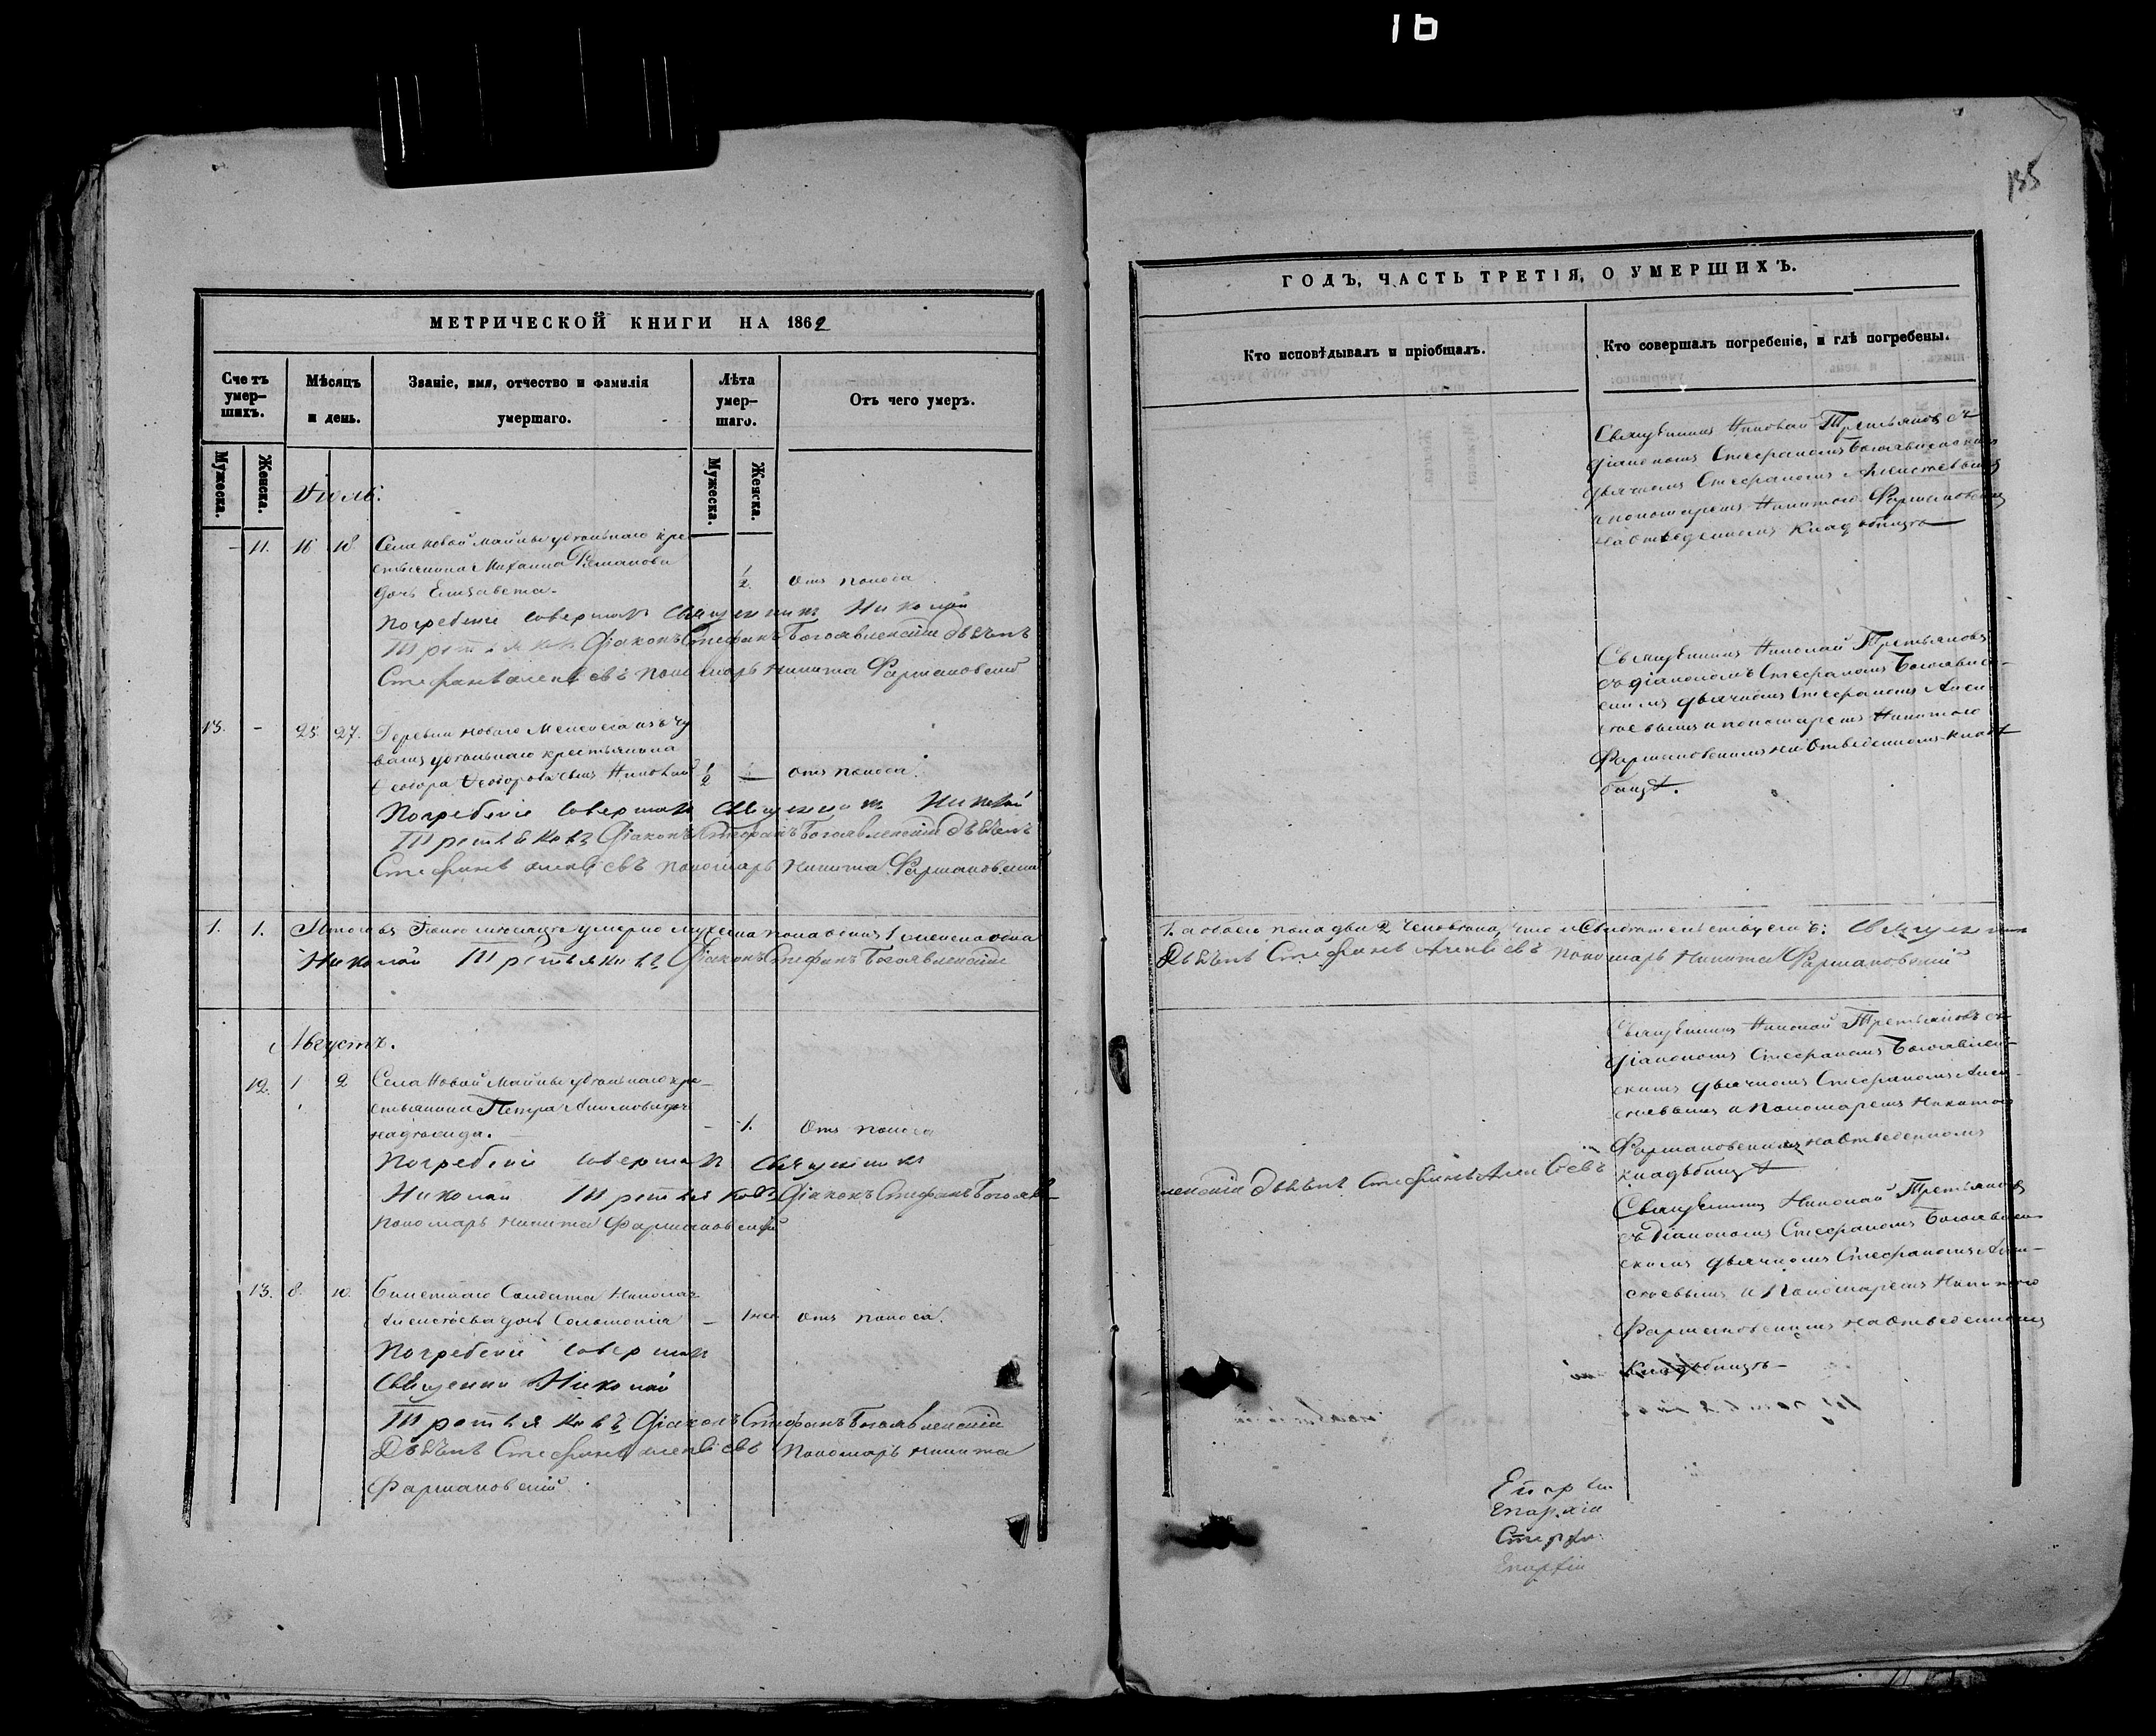 16
135
МЕТРИЧЕСКОЙ КНИГИ НА 1862
Счетъ умер-
шихъ.
Мужеска.
Женска.
Мѣсяцъ
и день.
Званіе, имя, отчество и фамилія
умершаго.
Лѣта
умер-
шаго.
Мужеска.
Женска.
Отъ чего умеръ.
Іюль.
- 11. 16 18 Села Новой Майны удѣльнаго кре-
стьянина Михаила Романова
дочь Елизавета. 1/2 Отъ поноса
Погребеніе совершалъ Священникъ Николай
Третьяковъ Діаконъ Стефанъ Богоявленскій Дьячекъ
Стефанъ Алексѣевъ Пономарь Никита Фармаковскій
13. - 25. 27. Деревни Новаго
вашъ удѣльнаго крестьянина
Ѳедора Ѳедорова сынъ Николай 1/2 — Отъ поноса.
Погребеніе совершалъ Священникъ Николай
Третьяковъ Діаконъ Стефанъ Богоявленскій Дьячекъ
Стефанъ Алексѣевъ Пономарь Никита Фармаковскій
1. 1. Итого въ Іюлѣ мѣсяцѣ умерло мужеска пола одинъ 1 женска одна
Николай Третьяковъ Діаконъ Стефанъ Богоявленскій
Августъ.
12. 1 2 Села Новой Майны удѣльнаго кре-
стьянина Петра дочь
- 1. Отъ поноса
Погребеніе совершалъ Священникъ
Николай Третьяковъ Діаконъ Стефанъ Богоявл-
Пономарь Никита Фармаковскій
13. 8. 10. Билетнаго Солдата Николая
Алексѣева дочь Соломонія - Отъ поноса.
Погребеніе совершалъ
Священни Николай
Третьяковъ Діаконъ Стефанъ Богоявленскій
Дьячекъ Стефанъ Алексѣевъ Пономарь Никита
Фармаковскій
ГОДЪ, ЧАСТЬ ТРЕТІЯ, О УМЕРШИХЪ.
Кто исповѣдывалъ и пріобщалъ.
Кто совершалъ погребеніе, и гдѣ погребены.
Священникъ Николай Третьяковъ съ
діакономъ Стефаномъ Богоявленскимъ
дьячкомъ Стефаномъ Алексѣевымъ
и пономаремъ Никитою Фармаковскимъ
на отведенномъ кладбищѣ
Священникъ Николай Третьяковъ
съ діакономъ Стефаномъ Богоявлен-
скимъ дьячкомъ Стефаномъ Алек-
сѣевымъ и пономаремъ Никитою
Фармаковскимъ на отведенномъ клад-
бищѣ.
1. а обоего пола два 2 человѣка, что и свидѣтельствуемъ: Священникъ
Дьячекъ Стефанъ Алексѣевъ Пономарь Никита Фармаковскій
Священникъ Николай Третьяковъ съ
діакономъ Стефаномъ Богоявлен-
скимъ дьячкомъ Стефаномъ Алек-
сѣевымъ и Пономаремъ Никитою
Фармаковскимъ на отведенномъ
кладбищѣ
ленскій Дьячекъ Стефанъ Алексѣевъ
Священникъ Николай Третьяковъ
съ Діакономъ Стефаномъ Богоявлен-
скимъ дьячкомъ Стефаномъ Алек-
сѣевымъ и Пономаремъ Никитою
Фармаковскимъ на отведенномъ
Кладбищѣ
Епархіи